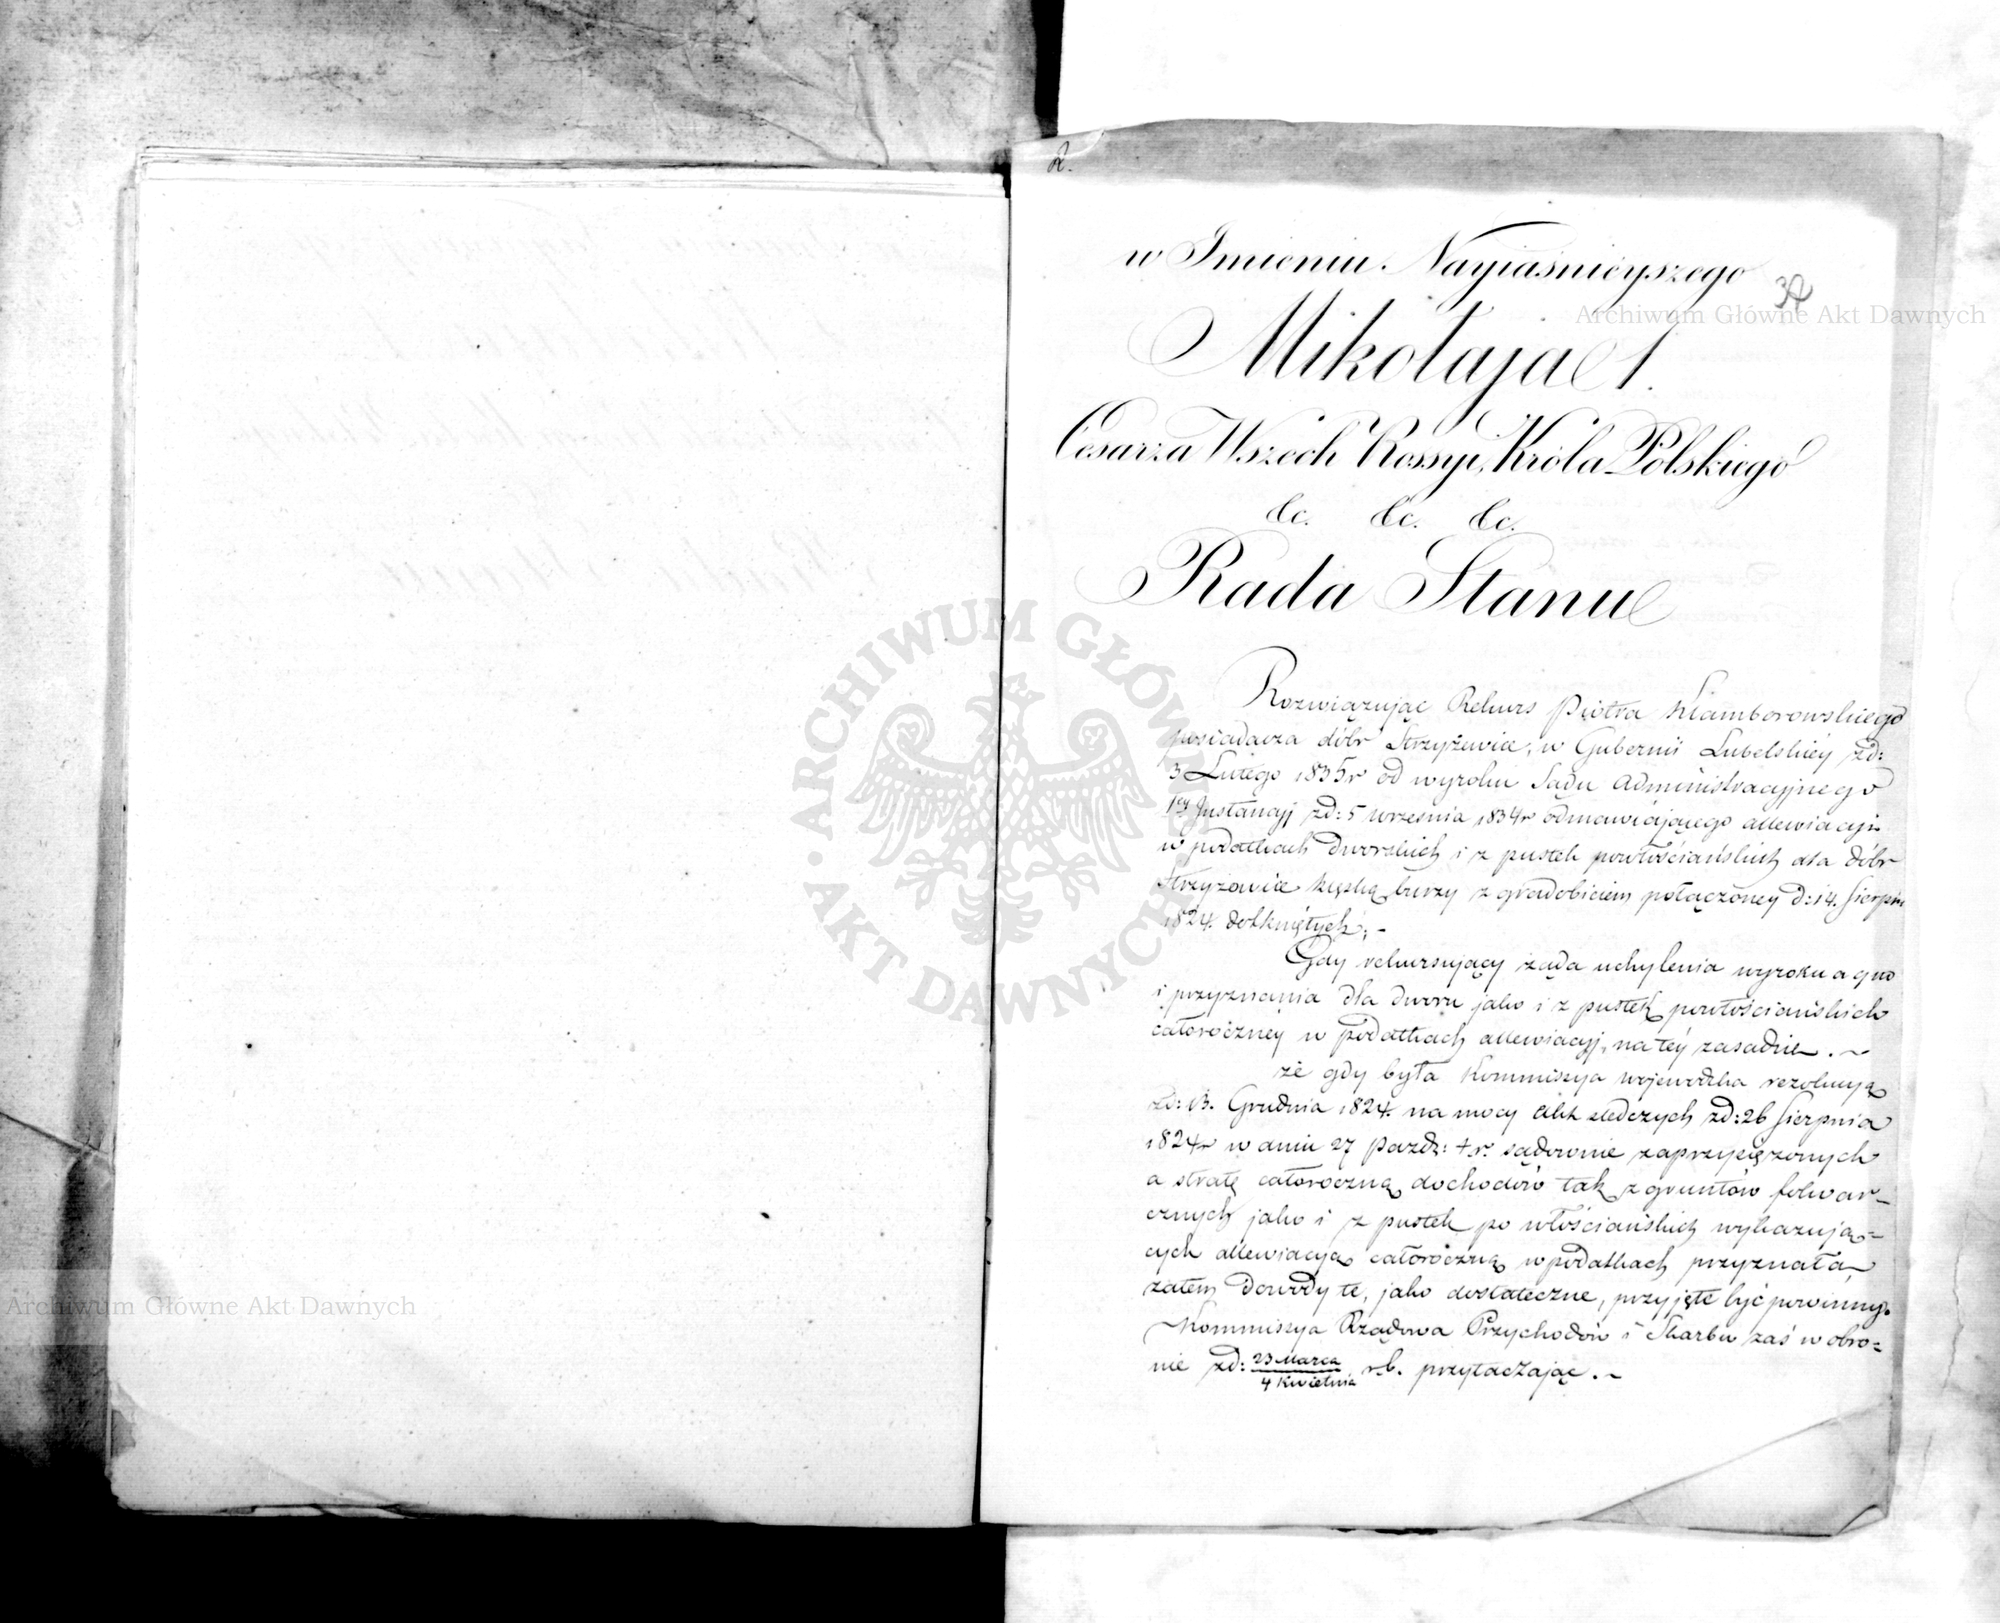 2.
w Imieniu Nayiaśnieyszego
32
Mikołaja I.
Cesarza Wszech Rossyi, Króla Polskiego
&c. &c. &c.
Rada Stanu
Rozwiązując Rekurs Piotra Kłamborowskiego
posiadacza dóbr Strzyżewice, w Gubernii Lubelskiéy zd:
3 Lutego 1835r od wyroku Sądu Administracyjnego
1éy Instancyj zd: 5 września 1834r odmawiającego allewiacyi
w podatkach dworskich i z pustek powłościańskich dla dóbr
Strzyżowice klęską burzy z gradobiciem połączoney d: 14. Sierpn
1824. dotkniętych; –
Gdy rekursujący żąda uchylenia wyroku a quo
i przyznania dla dworu jako i z pustek powłościańskich
całorocznéy w podatkach allewiacyj, na téy zasadzie. ~
że gdy była Kommissya wojewódzka rezolucyą
zd: 13. Grudnia 1824. na mocy Akt śledczych zd: 26 Sierpnia
1824r w dniu 27 Paźdz: t. r. sądownie zaprzysiężonych
a stratę całoroczną dochodów tak z gruntów folwar-
cznych jako i z pustek po włościańskich wykazują=
cych allewiacyą całoroczną w podatkach przyznała,
zatem dowody te, jako dostateczne, przyjęte być powinny.
Kommissya Rządowa Przychodów i Skarbu zaś w obro=
nie zd: 23 Marca / 4 Kwietnia r. b. przytaczając. ~
ARCHIWUM GŁÓWNE · AKT DAWNYCH ·
Archiwum Główne Akt Dawnych
Archiwum Główne Akt Dawnych